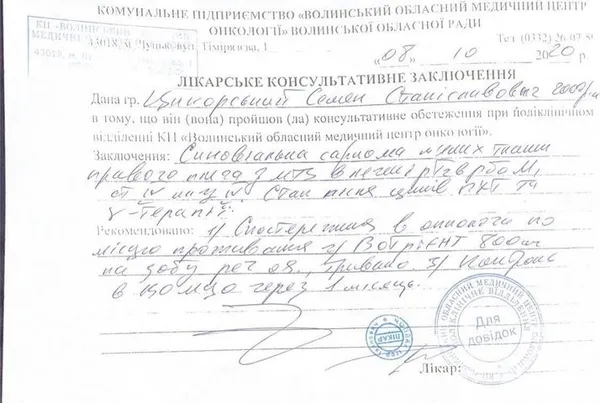 КОМУНАЛЬНЕ ПІДПРИЄМСТВО «ВОЛИНСЬКИЙ ОБЛАСНИЙ МЕДИЧНИЙ ЦЕНТР
ОНКОЛОГІЇ» ВОЛИНСЬКОЇ ОБЛАСНОЇ РАДИ
43018, м. Луцьк, вул. Тімірязєва, 1 Тел. (0332) 26-07-50
«08» 10 2020 г.
ЛІКАРСЬКЕ КОНСУЛЬТАТИВНЕ ЗАКЛЮЧЕННЯ
Дана гр. Цикорський Семен Станіславович 2000р.н
в тому, що він (вона) пройшов (ла) консультативне обстеження при поліклінічному
відділенні КП «Волинський обласний медичний центр онкології».
Заключення: Синовіальна саркома мяких тканин
правого плеча з мтс в легені
ст IV кл гр IV. Стан після циклів ПХТ та
γ-терапії.
Рекомендовано: 1/ Спостереження в онколога по
місцю проживання 2/ Вотрієнт 800мг
на добу per os, тривало. 3/
в через 1 місяць.
Для
довідок
ЛІКАР
Лікар: